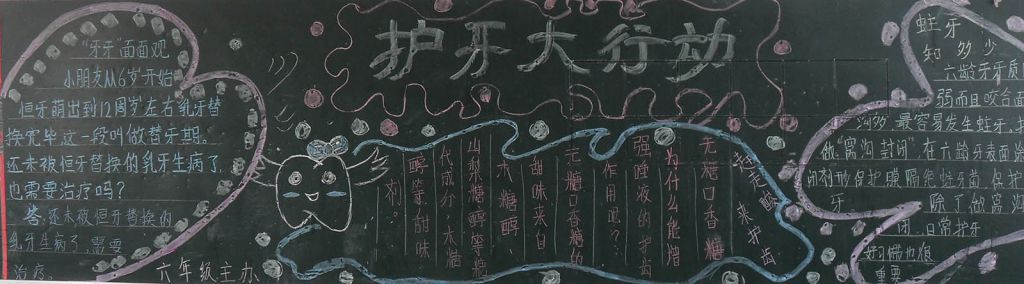 护牙大行动
"牙牙"面面观
小朋友从6岁开始
恒牙萌出到12周岁左右乳牙替
换完毕这一段叫做替牙期。
还未被恒牙替换的乳牙生病了
也需要治疗吗？
答：还未被恒牙替换的
乳牙生病了，需要
治疗。
六年级主办
来护齿
无糖口香糖
为什么能增
强唾液的护齿
作用呢？
无糖口香糖的
甜味来自
木糖醇、
山梨糖醇等糖
代成分，木糖
醇等甜味
剂。
蛀牙
知多少
六龄牙牙质
弱而且咬合面
沟多 最容易发生蛀牙，
做"窝沟封闭"在六龄牙表面涂
剂形保护膜隔绝蛀牙菌 保护
牙 除了做窝
闭，日常护牙
也很
重要